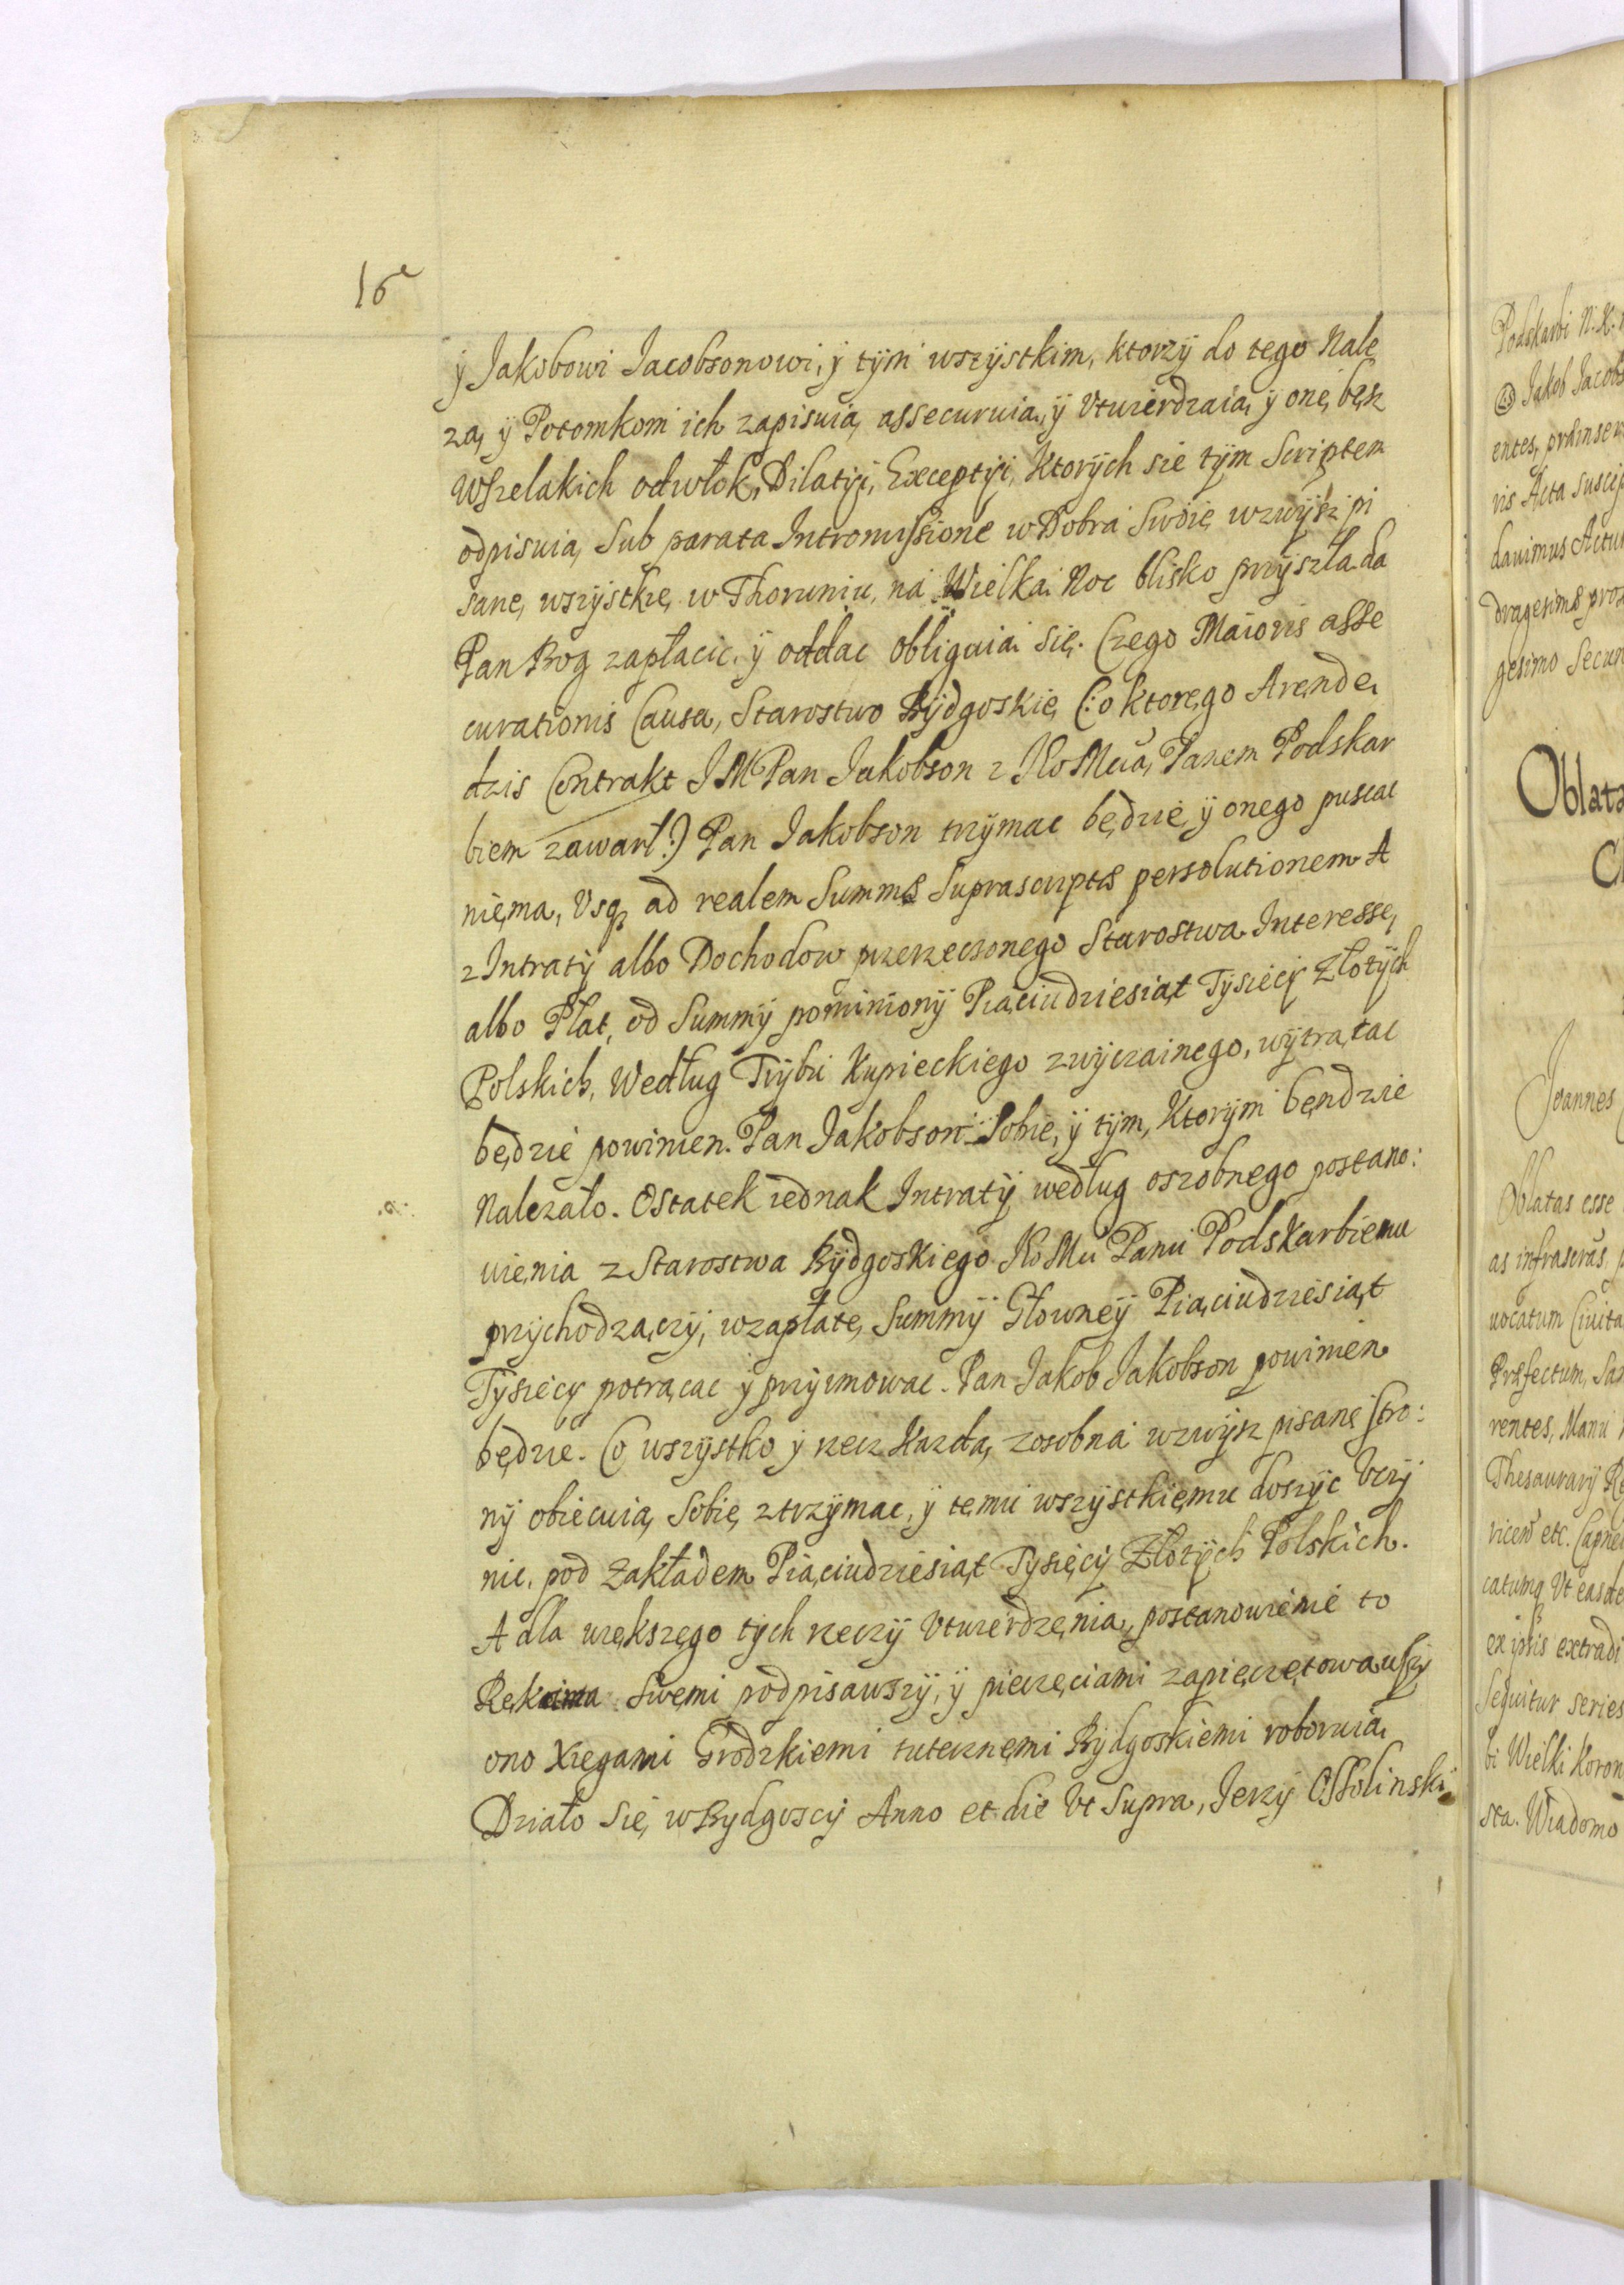 16
ÿ Jakobowi Jacobsonowi, ÿ tÿm wszÿstkim, ktorzÿ do tego Nale
zą, ÿ Potomkom ich zapisuią, assecuruią, ÿ Vtwierdzaią, ÿ onę bęz
Wszelakich odwłok, Dilatÿi, Exceptÿi, Ktorÿch się tÿm Scriptem
odpisuią, Sub parata Intromissione w Dobra Swoie, wzwÿsz pi
sane, wszÿstkie, w Thoruniu, na Wielką Noc blisko przÿszłą da
Pan Bog zapłacic, ÿ oddac obliguią się. Czego Maioris asse
curationis Causa, Starostwo Bÿdgoskie (: o ktorego Arendę
dzis Contrakt J M Pan Jakobson z Ko Mcią, Panem Podskar
biem zawarł :) Pan Jakobson trzÿmac będzie, ÿ onego puscac
niema, Vsq ad realem Summæ Suprascriptæ persolutionem A
z Intratÿ albo Dochodow przerzeczonego Starostwa Interesse,
albo Płat, od Summÿ pominionÿ Piąciudziesiąt Tÿsięcÿ Złotÿch
Polskich, Według Trÿbu Kupieckiego zwÿczainego, wÿtrątac
będzie powinien. Pan Jakobson Sobie, ÿ tÿm, Ktorÿm bęndzie
Nalezało. Ostatek iednak Intratÿ według oszobnego postano:
wienia z Starostwa Bÿdgoskiego Ko Mu Panu Podskarbiemu
przÿchodzączÿ, wzapłatę Summÿ Głowneÿ Piąciudziesiąt
Tÿsięcÿ potrącac ÿ przÿimowac. Pan Jakob Jakobson powinien
będzie. Co wszÿstko ÿ rzecz Kazdą, zosobna wzwÿsz pisane stro:
nÿ obiecuią, Sobie, ztrzÿmac, ÿ temu wszÿstkiemu doszÿc Vczÿ
nic, pod Zakładem Piąciudziesiąt Tÿsięcÿ Złotÿch Polskich.
A dla większego tÿch rzeczÿ Vtwierdzenia, postanowienie to
Swemi podpisawszÿ, ÿ pieczęciami zapieczętowawszÿ
ono Xięgami Grodzkiemi tutecznemi Bÿdgoskiemi roboruią.
Działo Się, w Bydgoscÿ Anno et die Vt Supra, Jerzÿ Ossolinski
Podskarbi N. K.
Jakob Jacobs
entes,
ris Acta suscep
dauimus Actu
dragesimæ pro
gesimo Secun
Oblata
Joannes
Oblatas esse
as infrascras
uocatum Ciuita
Præfectum, Sa
rentes, Manu
Thesaurarÿ Re
ricem etc. Capne
catumq Vt easde
ex ipsis extradi
Sequitur series
bi Wielki Koron
sta. Wiadomo